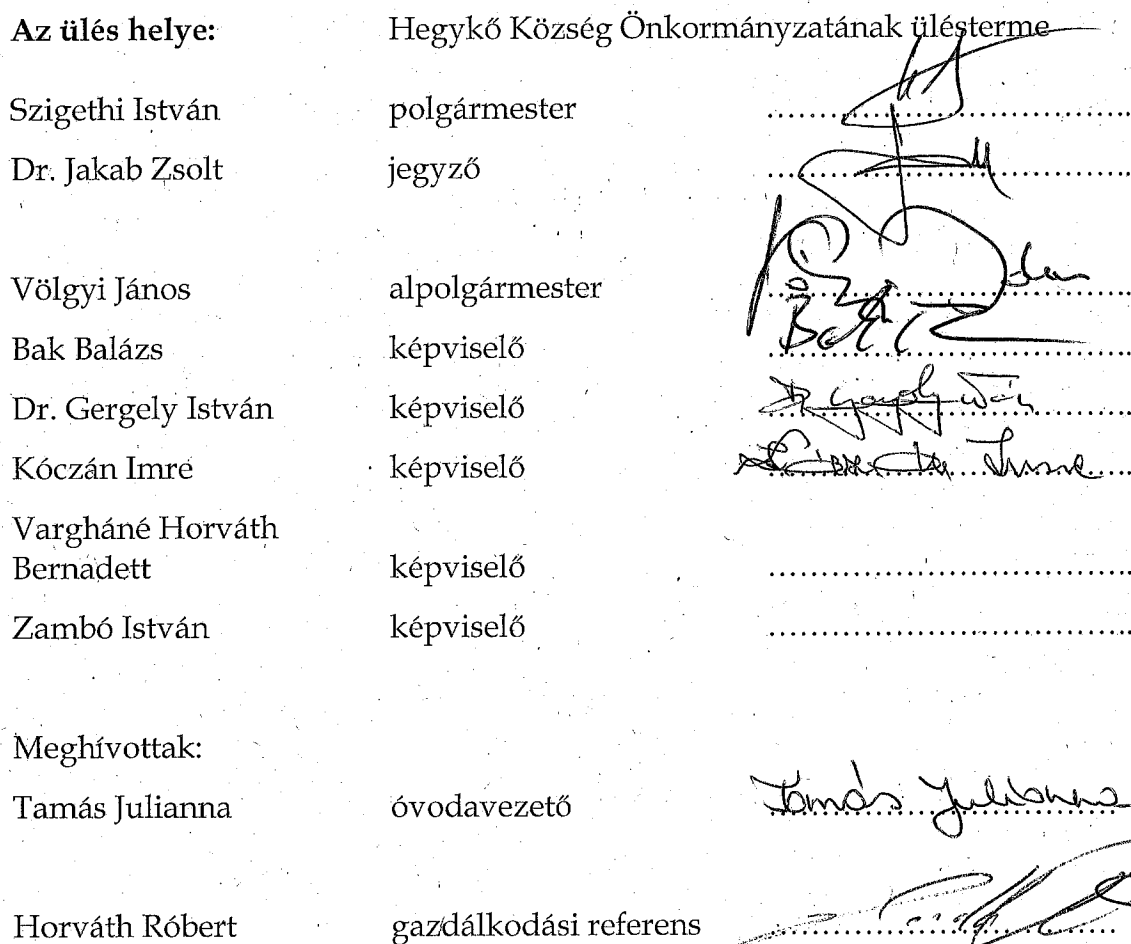 Az ülés helye: Hegykő Község Önkormányzatának ülésterme
Szigethi István polgármester ........................................
Dr. Jakab Zsolt jegyző ........................................
Völgyi János alpolgármester ........................................
Bak Balázs képviselő ........................................
Dr. Gergely István képviselő ........................................
Kóczán Imre képviselő ........................................ Imre
Vargháné Horváth
Bernadett képviselő ........................................
Zambó István képviselő ........................................
Meghívottak:
Tamás Julianna óvodavezető Tamás Julianna
Horváth Róbert gazdálkodási referens ........................................